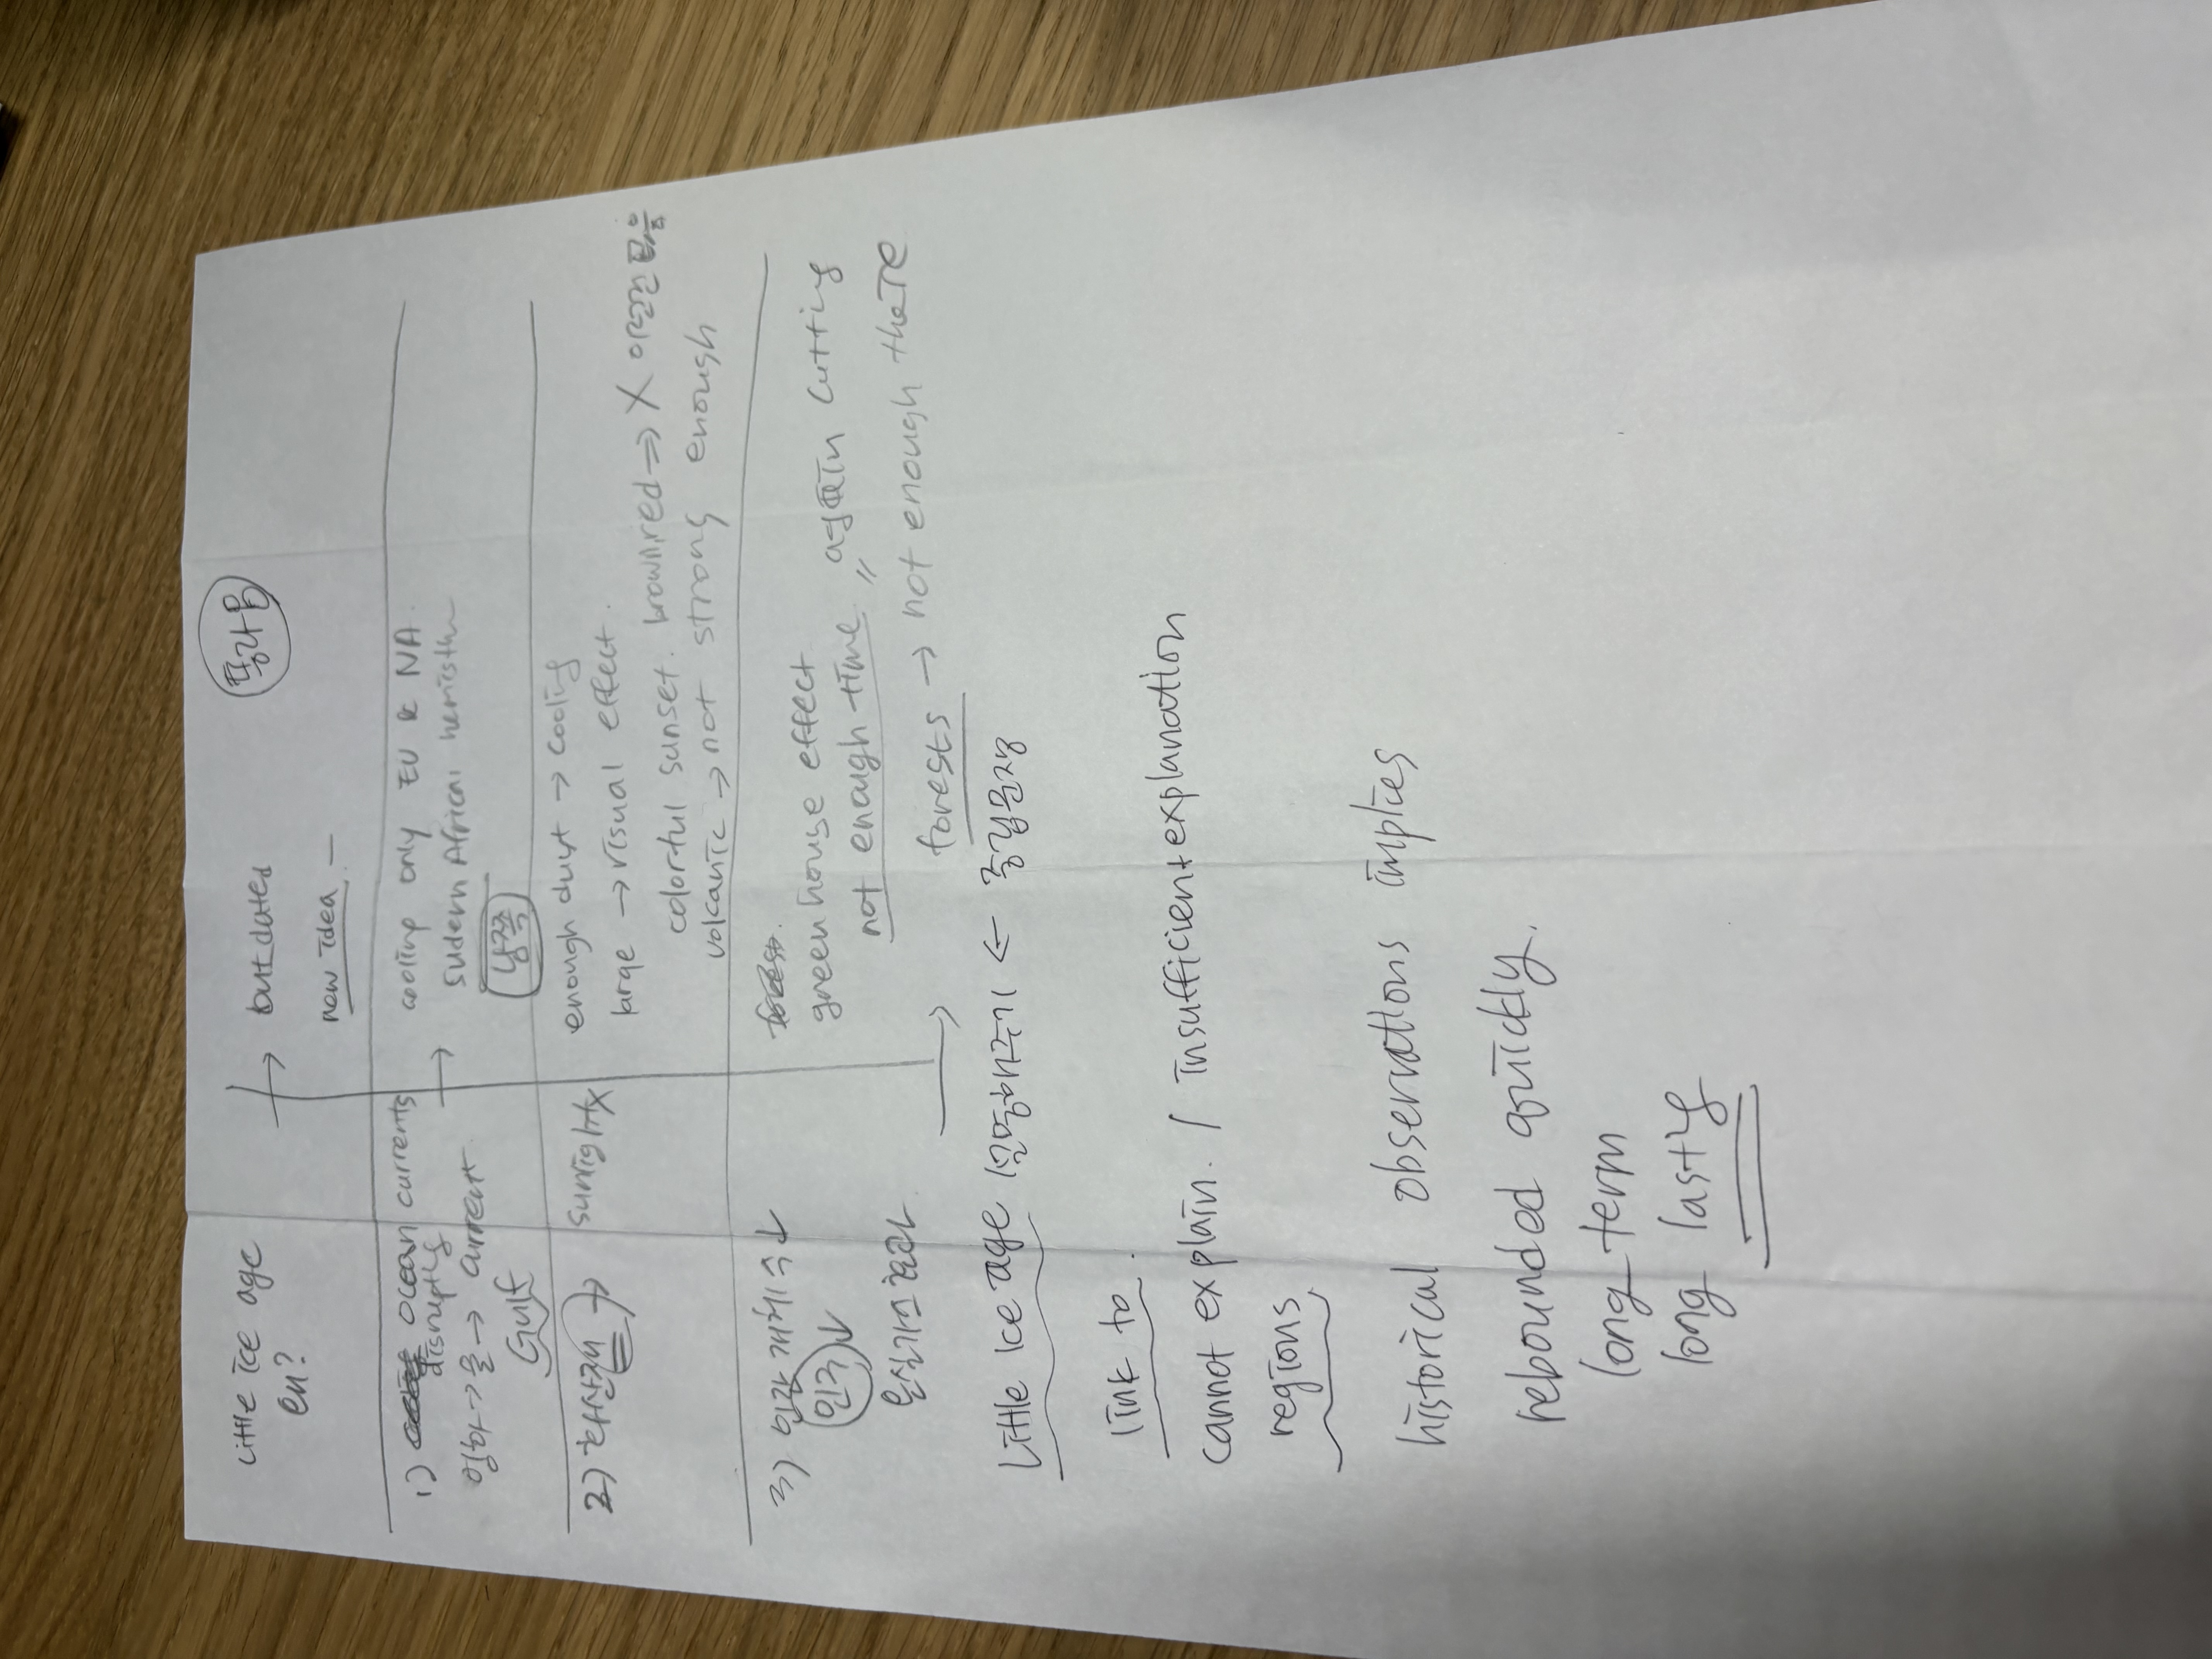 Little ice age
en?
→ outdated
new idea. —
1) ocean currents
disrupting
빙하 → 물 → current
Gulf
→ cooling only EU & NA.
sudern African hemisthe
남쪽
2) 화산재 → sunlight X
enough dust → cooling
large → visual effect.
colorful sunset. brown, red ⇒ X 이런건 없음
volcanic → not strong enough
3) 인간 개체수 ↓
인구 ↓
온실가스 효과 ↓
greenhouse effect
not enough time, again cutting
forests → not enough there
Little ice age ← 종합문장
link to.
cannot explain. / insufficient explanation
regions
historical observations implies
rebounded quickly.
long-term
long lasty